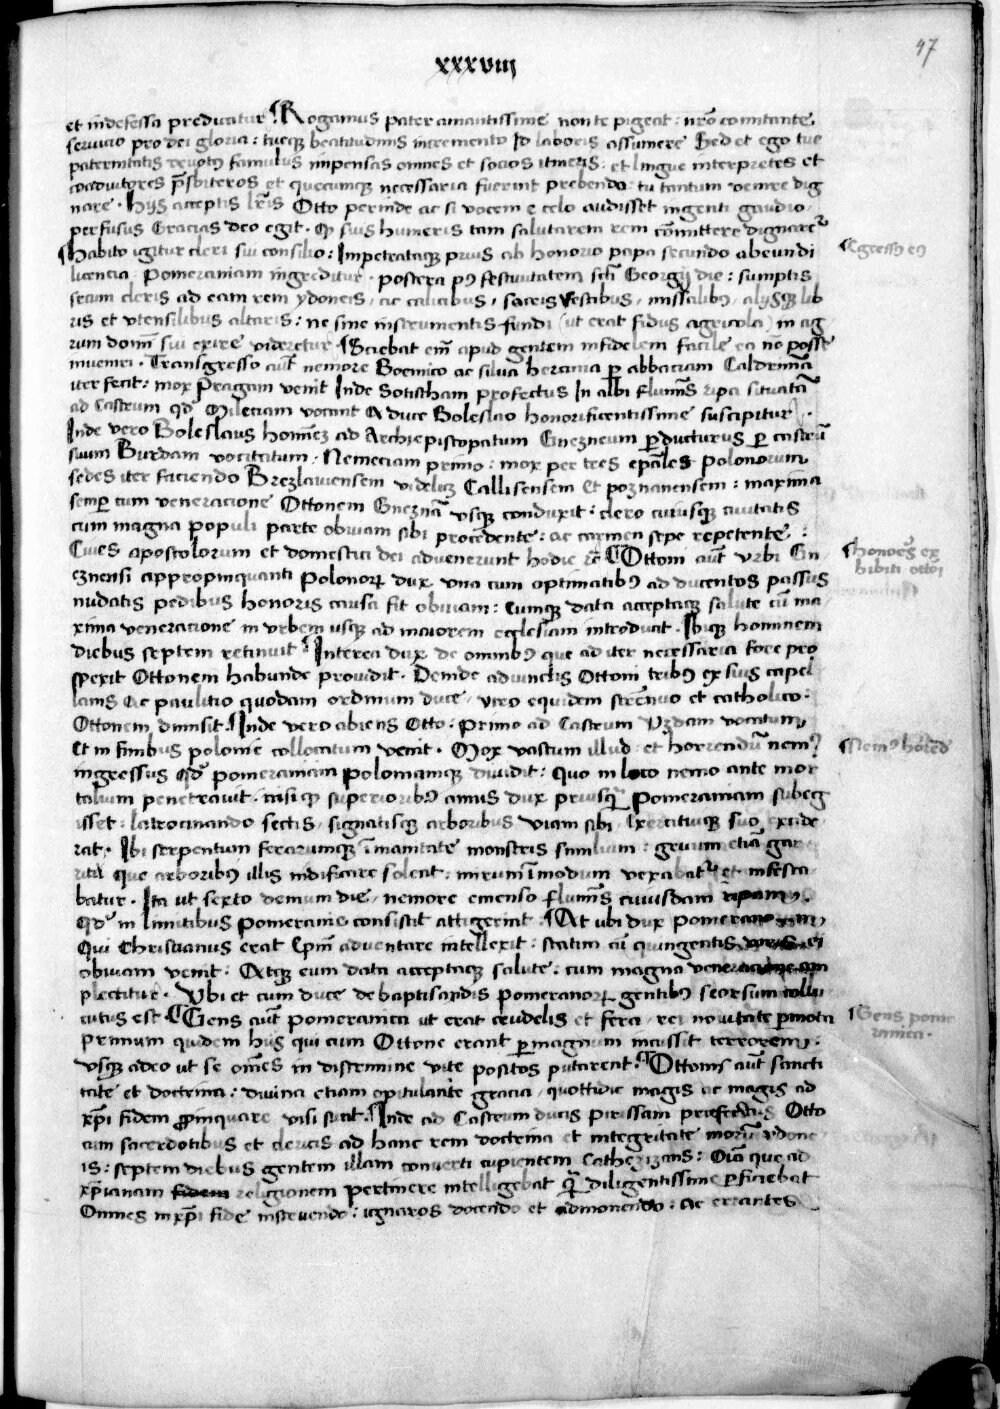 47
xxxviij
et indefessa predicatur ¶ Rogamus pater amantissime non te pigeat : nr̄o comitante
servicio pro dei gloria : tueq̧ beatitudinis incremento Id laboris assumere Sed et ego tue
paternitatis devotꝰ famulus impensas omnes et socios itineris : et lingue interpretes et
coadiutores p̄sbiteros et quecumq̧ necessaria fuerint prebenda : tu tantum venire dig
nare · Hijs acceptis lr̄is Otto perinde ac si vocem e celo audisset ingenti gaudio
perfusus Gracias deo egit · ꝙ suis humeris tam salutarem rem cōmittere dignareꝉ
¶ Habito igitur cleri sui consilio : Impetrataq̧ prius ab honorio papa secundo abeundi
licencia · Pomeraniam ingreditur · postera pꝰ festivitatem sc̄ti Georgij die : sumptis
secum cleris ad eam rem ydoneis · ac calicibus · sacris vestibus · missalibꝰ · alijsq̧ lib
ris et vtensilibus altaris : ne sine instrumentis fundi (ut erat fidus agricola) in ag
rum domī sui exire videretur ¶ Sciebat em̄ apud gentem infidelem facile ea nō posse
inveniri · Transgresso aut̄ nemore Boemico ac silva hercinia ꝑ abbaciam Caldrinā
iter fecit : mox Pragam venit Inde Sotischam profectus In albi flumīs ripa situatā
ad Castrum qd̄ Mileciam vocant A duce Boleslao honorificentissime suscipitur ·
Inde vero Boleslaus homīez ad Archiepiscopatum Gnezneum ꝑducturus ꝑ castrū
suum Burdam vocitatum · Nemeciam primo : mox per tres ep̄ales Polonorum
sedes iter faciendo Brezlaviensem videlicz Callisensem et poznanensem : maxima
semper cum veneracione Ottonem Gneznā usq̧ conduxit · clero cuiusq̧ civitatis
cum magna populi parte obviam sibi procedente : ac carmen sepe repetente :
Cives apostolorum et domestici dei advenerunt hodie rc̄ ¶ Ottoni aut̄ Vrbi Gn
eznensi appropinquanti Polonorꝝ dux vna cum optimatibꝰ ad ducentos passus
nudatis pedibus honoris causa fit obviam : Cumq̧ data acceptaq̧ salute cū ma
xima veneracione in vrbem usq̧ ad maiorem ecclesiam introducit · Ibiq̧ hominem
diebus septem retinuit ¶ Interea dux de omnibꝰ que ad iter necessaria fore pro
spexit Ottonem habunde providit · Deinde adiunctis Ottoni tribꝰ ex suis capel
lanis Ac paulitio quodam ordinum duce · viro equidem strenuo et catholico :
Ottonem dimisit · ¶ Inde vero abiens Otto : Primo ad Castrum Vzdam vocatum
Et in finibus polonie collocatum venit · Mox vastum illud et horrendū nemꝰ
ingressus qd̄ pomeraniam Poloniamq̧ dividit : quo in loco nemo ante mor
talium penetravit · nisi ꝙ superioribꝰ annis dux priusq̄ Pomeraniam subeg
isset : latrocinando sectis · signatisq̧ arboribus viam sibi · Exercituiq̧ suo excide
rat · Ibi serpentum ferarumq̧ īmanitate monstris similium : gruum etiā gar
que arboribꝰ illis nidificare solent : mirum īmodum vexabatꝉ et infesta
batur · Ita ut sexto demum die · nemore emenso flumīs cuiusdam ripam
Qd̄ in limitibus Pomeranie consistit attigerint · ¶ At ubi dux pomeranorum
Qui Christianus erat Ep̄m adventare intellexit : statim cū quingentis viris ei
obviam venit · Atq̧ eum data acceptaq̧ salute · cum magna veneracione am
plectitur · Vbi et cum duce de baptisandis pomeranorꝝ gentibꝰ seorsum collo
cutus est ¶ Gens aut̄ pomeranica ut erat crudelis et fera · rei novitate ꝑmota
Primum quidem hijs qui cum Ottone erant ꝑ magnum incussit terrorem :
vsq̧ adeo ut se om̄es in discrimine vite positos putarent · ¶ Ottonis aut̄ sancti
tate et doctrina : divina etiam opitulante gracia · quottidie magis ac magis ad
xp̄i fidem ꝓpinquare visi sunt · ¶ Inde ad Castrum ducis pirissam prefectus Otto
cum sacerdotibus et clericis ad hanc rem doctrina et integritate morū ydone
is : septem diebus gentem illam converti cupientem Cathezizans : Oīa que ad
xp̄ianam religionem pertinere intelligebat q̄ diligentissime ꝑficiebat
Omnes in xp̄i fide instruendo : ignaros docendo et admonendo : ac errantes
¶ Egressꝰ eiꝰ
¶ honoēs ex
hibiti ottoī
¶ Nemꝰ horēd
¶ Gens pome
ranica ·